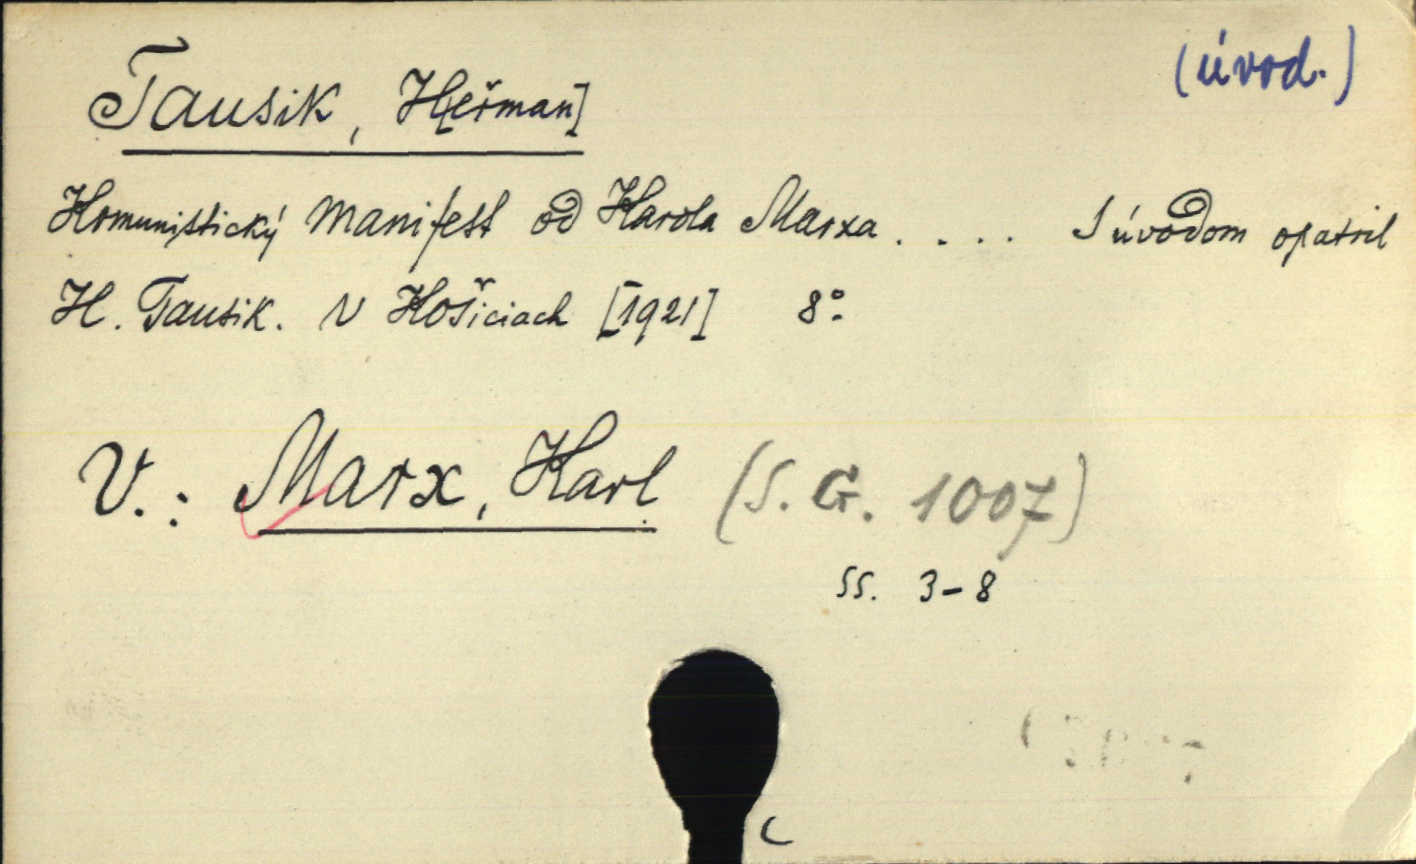 (úvod.)
Tausik, H[eřman]
Komunistický manifest od Karola Marxa . . . . S úvodom opatril
H. Tausik. V Košiciach [1921] 8°
V.: Marx, Karl (S. G. 1007)
ss. 3-8